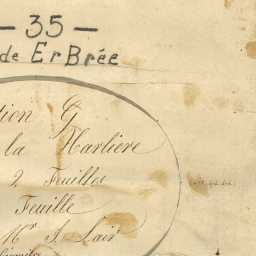 — 35 —
de ErBrée
tion G
la Harlière
2 Feuilles
Feuille
Mr J. Lair